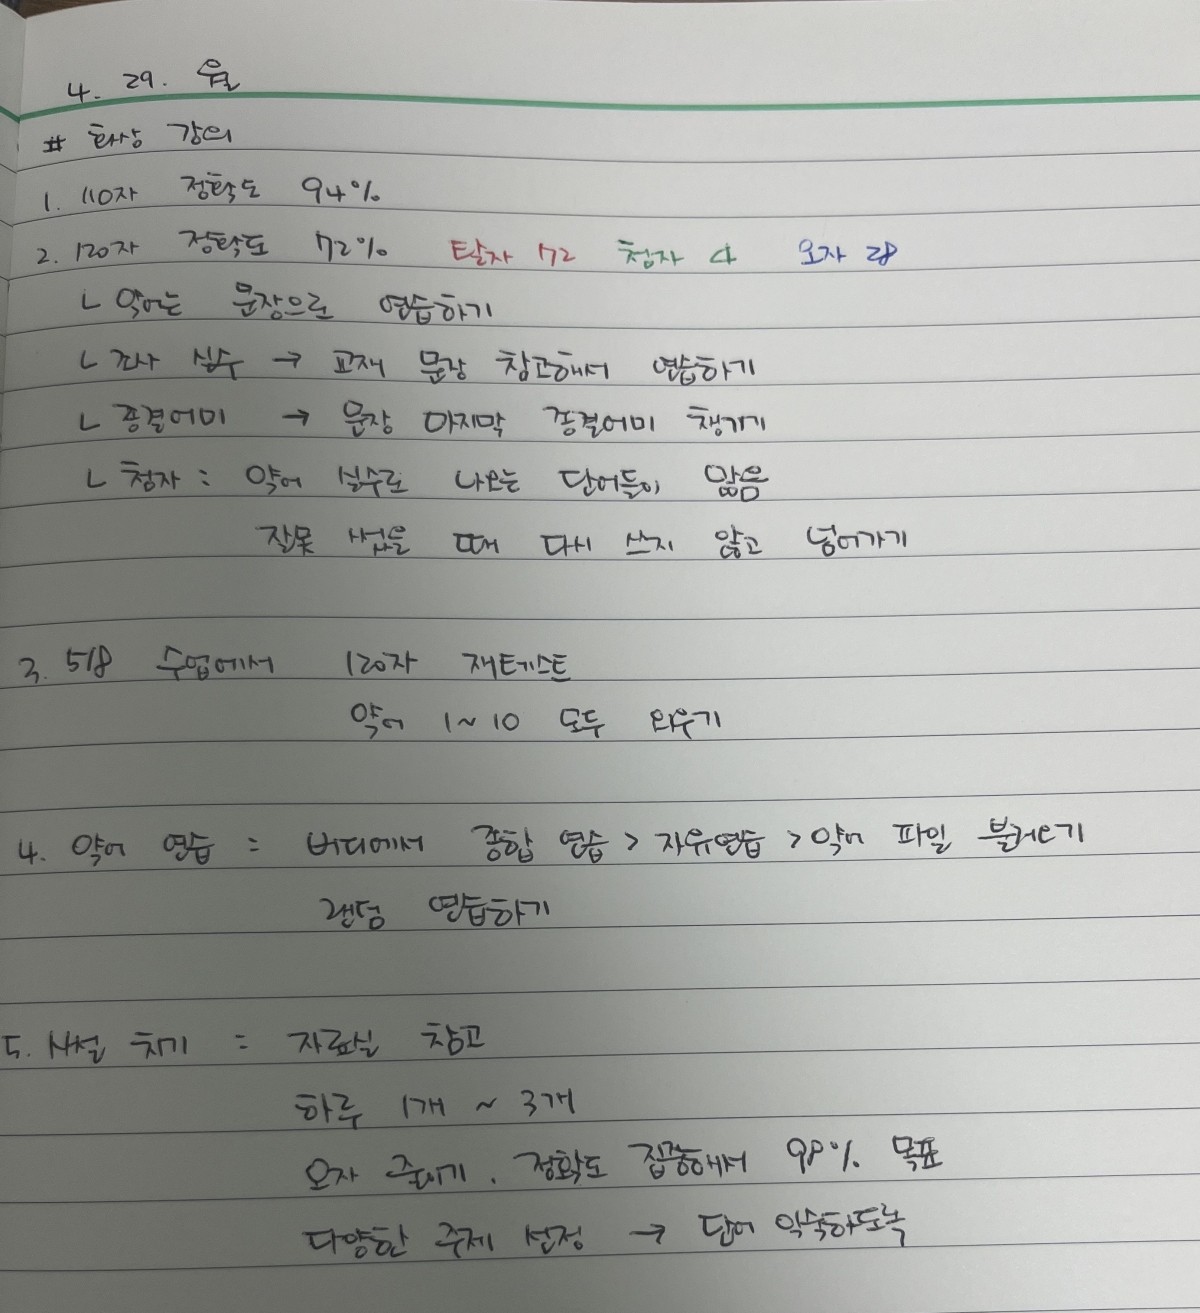 4. 29. 월
# 화상 강의
1. 110자 정확도 94%
2. 120자 정확도 72% 탈자 72 첨자 4 오자 28
ㄴ 약어는 문장으로 연습하기
ㄴ 조사 실수 → 교재 문장 참고해서 연습하기
ㄴ 종결어미 → 문장 마지막 종결어미 챙기기
ㄴ 첨자 : 약어 실수로 나오는 단어들이 많음
잘못 썼을 때 다시 쓰지 않고 넘어가기
3. 5/8 수업에서 120자 재테스트
약어 1~10 모두 외우기
4. 약어 연습 : 버디에서 종합 연습 > 자유연습 > 약어 파일 불러오기
랜덤 연습하기
5. 사설 치기 : 자료실 참고
하루 1개 ~ 3개
오자 줄이기. 정확도 집중해서 98% 목표
다양한 주제 선정 → 단어 익숙하도록